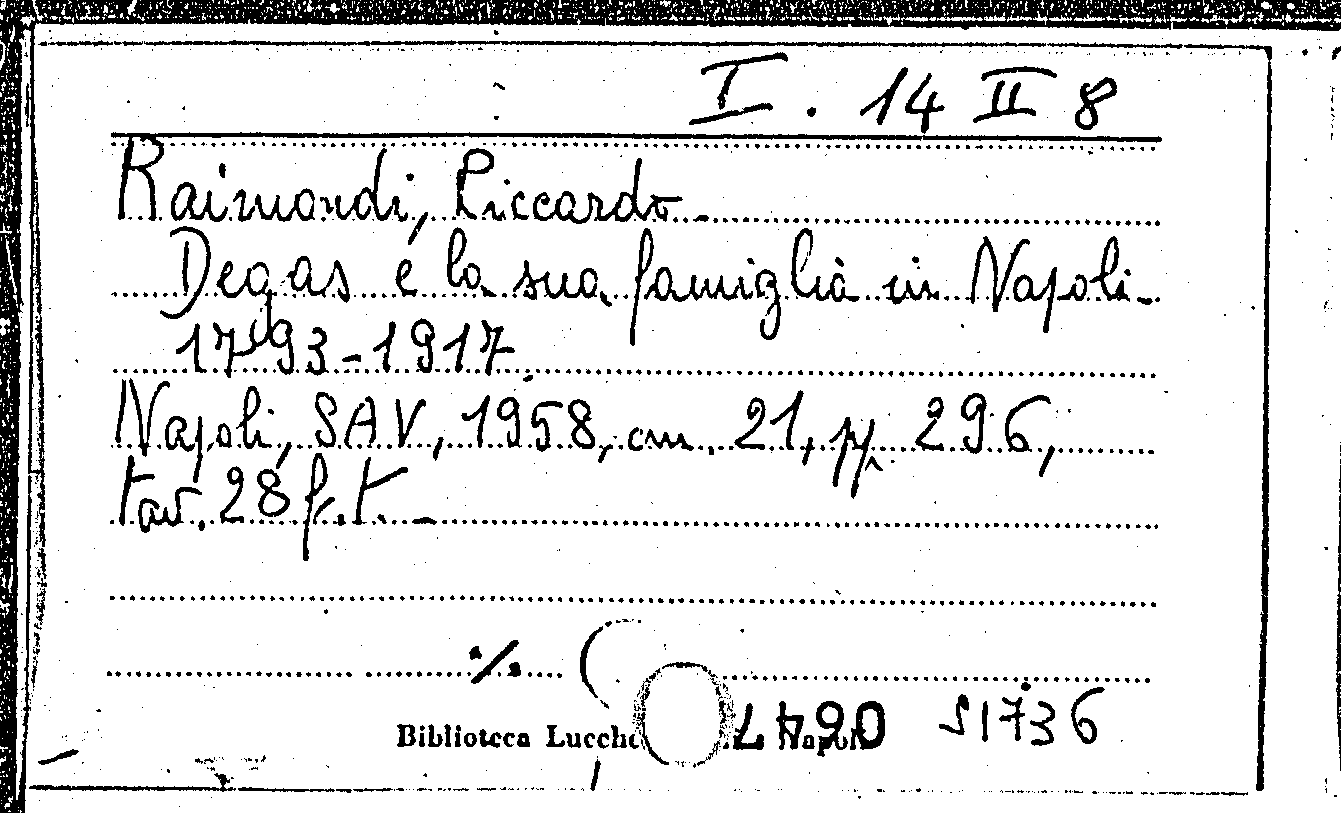 I. 14 II 8
Raimondi, Riccardo.
Degas e la sua famiglia in Napoli.
1793-1917.
Napoli, SAV, 1958, cm. 21, pp. 296,
tav. 28 f.t. -
./.
Biblioteca
51736